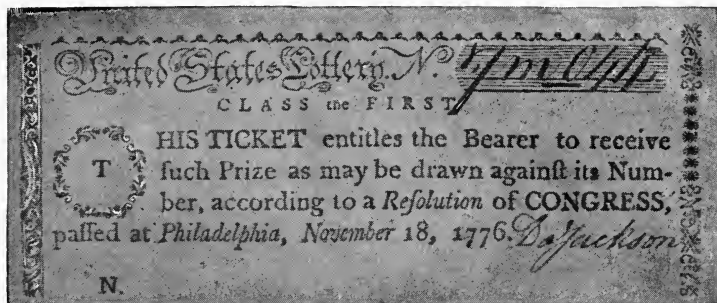 United States Lottery. N.º
CLASS the FIRST
THIS TICKET entitles the Bearer to receive
ſuch Prize as may be drawn againſt its Num-
ber, according to a Reſolution of CONGRESS,
paſſed at Philadelphia, November 18, 1776. Dd Jackson
N.